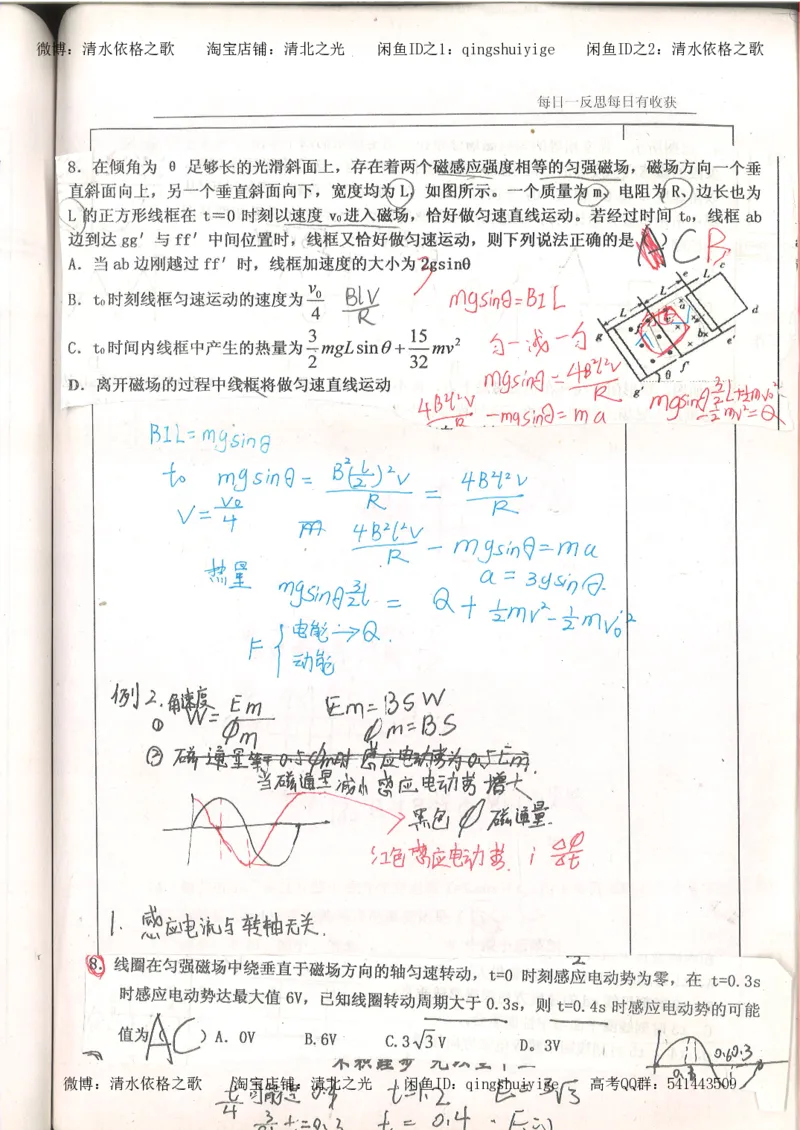 微博：清水依格之歌 淘宝店铺：清北之光 闲鱼ID之1：qingshuiyige 闲鱼ID之2：清水依格之歌
每日一反思每日有收获
8. 在倾角为 θ 足够长的光滑斜面上，存在着两个磁感应强度相等的匀强磁场，磁场方向一个垂
直斜面向上，另一个垂直斜面向下，宽度均为 L，如图所示。一个质量为 m、电阻为 R、边长也为
L 的正方形线框在 t=0 时刻以速度 v₀进入磁场，恰好做匀速直线运动。若经过时间 t₀，线框 ab
边到达 gg′与 ff′中间位置时，线框又恰好做匀速运动，则下列说法正确的是（ ） A C B
A. 当 ab 边刚越过 ff′时，线框加速度的大小为 2gsinθ 3
B. t₀时刻线框匀速运动的速度为 v₀/4 BlV/R mgsinθ=BIL
C. t₀时间内线框中产生的热量为 3/2 mgLsinθ+ 15/32 mv² 匀一减一匀
D. 离开磁场的过程中线框将做匀速直线运动 mgsinθ=4B²l²V/R
4B²l²V/R -mgsinθ=ma
L L c e a d b e′ f′ g g′ θ
BIL=mgsinθ
to mgsinθ= B²(L/2)²V/R = 4B²l²V/R
V=V₀/4 4B²l²V/R - mgsinθ=ma
热量 a=3gsinθ.
mgsinθ 3/2 L = Q+½mv²-½mv₀²
F { 电能→Q.
动能
例2. 角速度
① W=Em/Φm Em=BSW Φm=BS
② 磁通量等于0.5Φm时 感应电动势为0.5Em.
当磁通量减小 感应电动势 增大
黑色 Φ 磁通量.
红色 感应电动势. i ΔΦ/Δt
1. 感应电流与转轴无关.
8. 线圈在匀强磁场中绕垂直于磁场方向的轴匀速转动，t=0 时刻感应电动势为零，在 t=0.3s
时感应电动势达最大值 6V，已知线圈转动周期大于 0.3s，则 t=0.4s 时感应电动势的可能
值为（ AC ）A. 0V B.6V C.3√3V D. 3V
微博：清水依格之歌 淘宝店铺：清北之光 闲鱼ID：qingshuiyige 高考QQ群：541443509